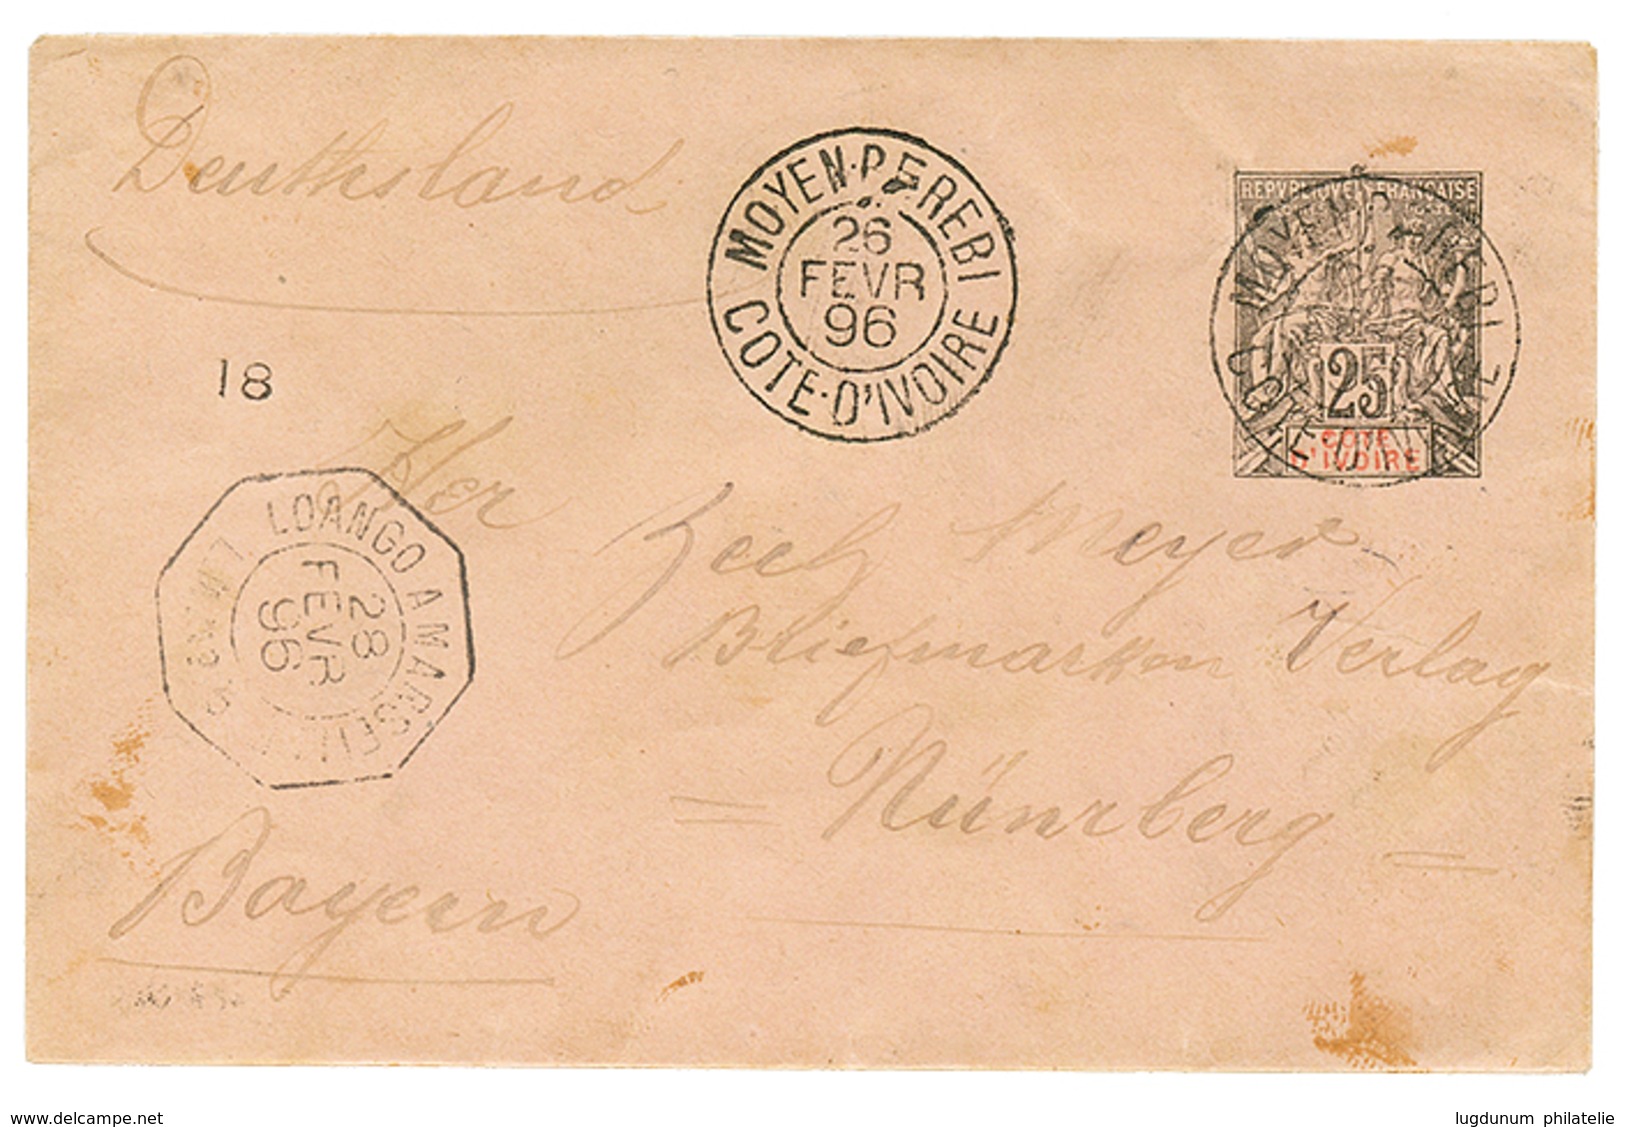 Deuthsland
MOYEN·PEREBI
26
FEVR
96
COTE·D'IVOIRE
REPVBLIQVE FRANÇAISE
25
COTE
D'IVOIRE
18
LOANGO A MARSEILLE
28
FEVR
96
Her
Zech Meyer
Briefmarken Verlag
= Nünrberg =
Bayern
www.delcampe.net
lugdunum philatelie